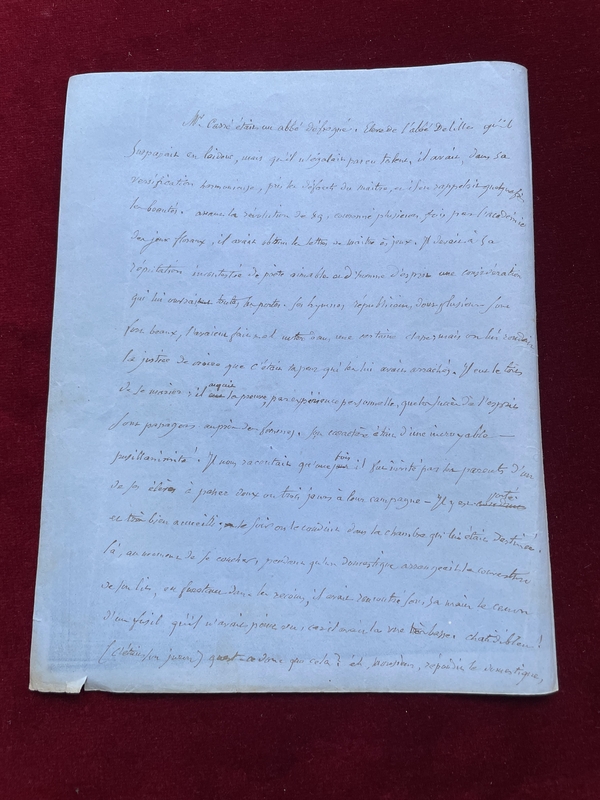 Mr. Carré était un abbé défroqué. Élève de l'abbé Delille qu'il
surpassait en laideur, mais qu'il n'égalait pas en talens, il avait, dans sa
versification harmonieuse, pris les défauts du maître, et il en rappelait quelque fois
les beautés. avant la révolution de 89, couronné plusieurs fois par l'académie
des jeux floraux, il avait obtenu les lettres de maître ès jeux. Il devait à sa
réputation incontestée de poète aimable et d'homme d'esprit une considération
qui lui ouvrait toutes les portes. Ses hymnes républicains, dont plusieurs sont
fort beaux, l'avaient fait mal noter dans une certaine classe mais on lui rendait
la justice de croire que c'était la peur qui les lui avait arrachés. Il eut le tort
de se marier; il acquit la preuve, par expérience personnelle, que les succès de l'esprit
sont passagers auprès des femmes. Son caractère était d'une incroyable
pusillanimité! Il nous racontait qu'une fois il fut invité par les parents d'un
de ses élèves à passer deux ou trois jours à leur campagne — Il y est
et bien accueilli; le soir on le conduit dans la chambre qui lui était destinée.
là, au moment de se coucher, pendant qu'un domestique arrangeait la couverture
de son lit, en furetant dans les recoins, il avait rencontré sous sa main le canon
d'un fusil qu'il n'avait point vu, car il avait la vue basse.
(c'était son juron) qu'est-ce donc que cela? eh monsieur, répondit le domestique,